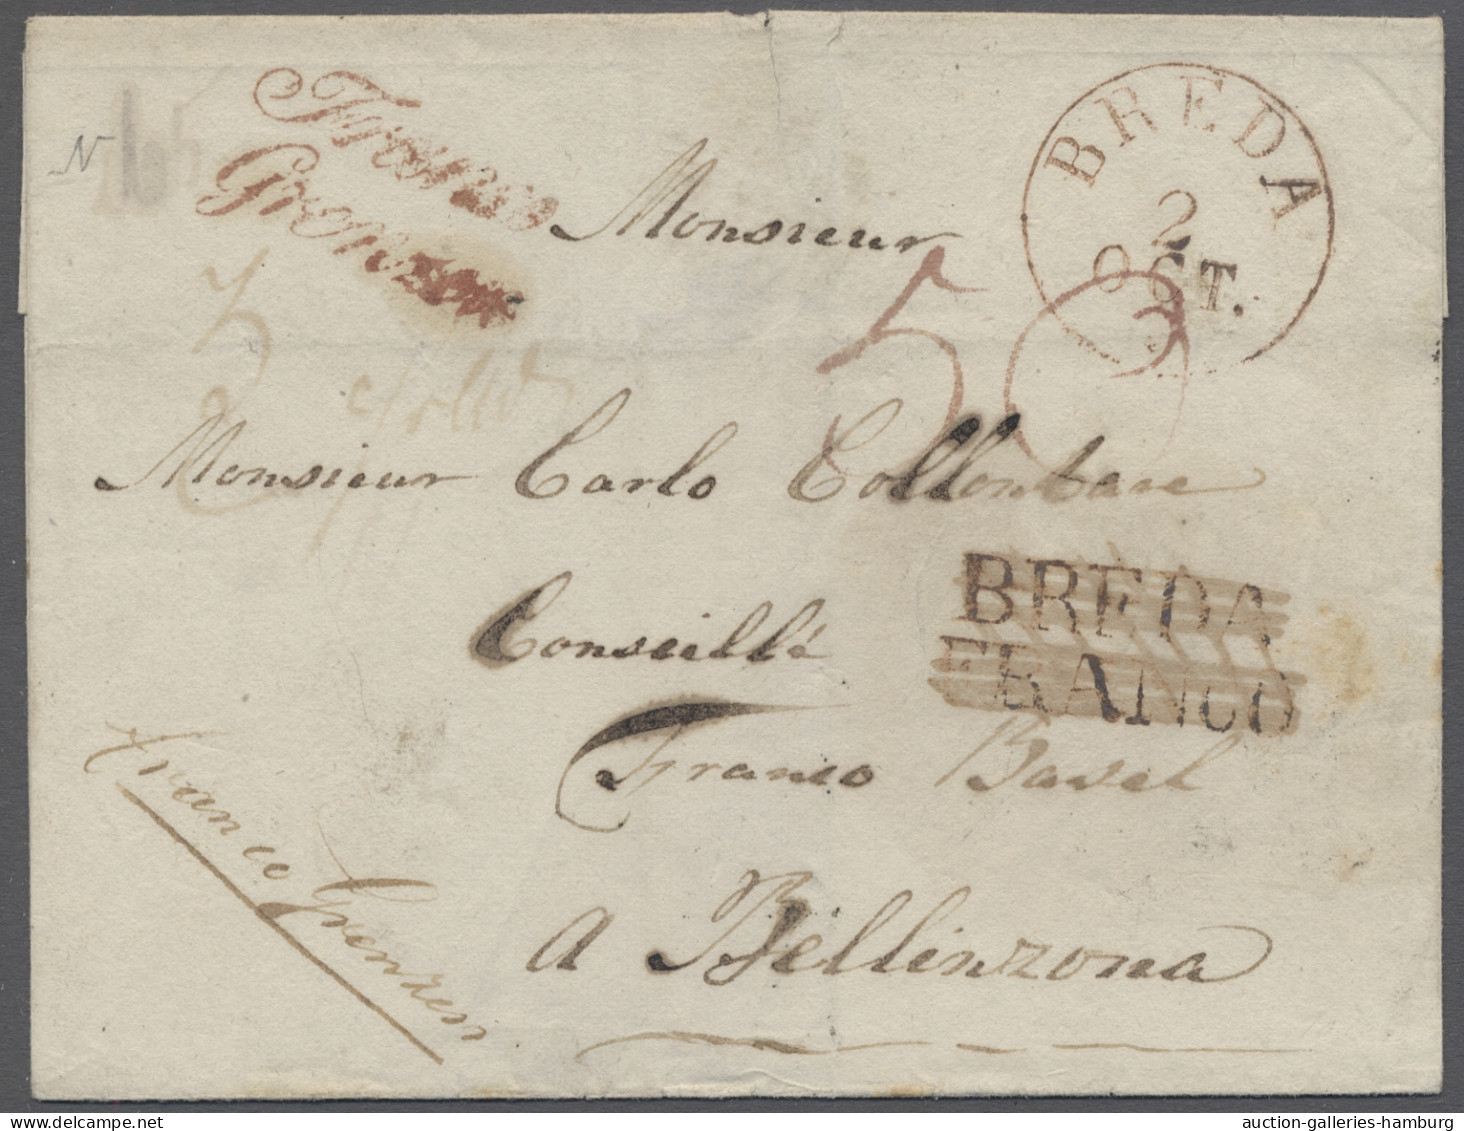 Franco
Grenzen
BREDA
2
OCT.
N
Monsieur
50
Monsieur Carlo Collombare
Conseillé
BREDA
FRANCO
Franco Basel
Franco Grenzen
a Bellinzona
auction-galleries-hamburg